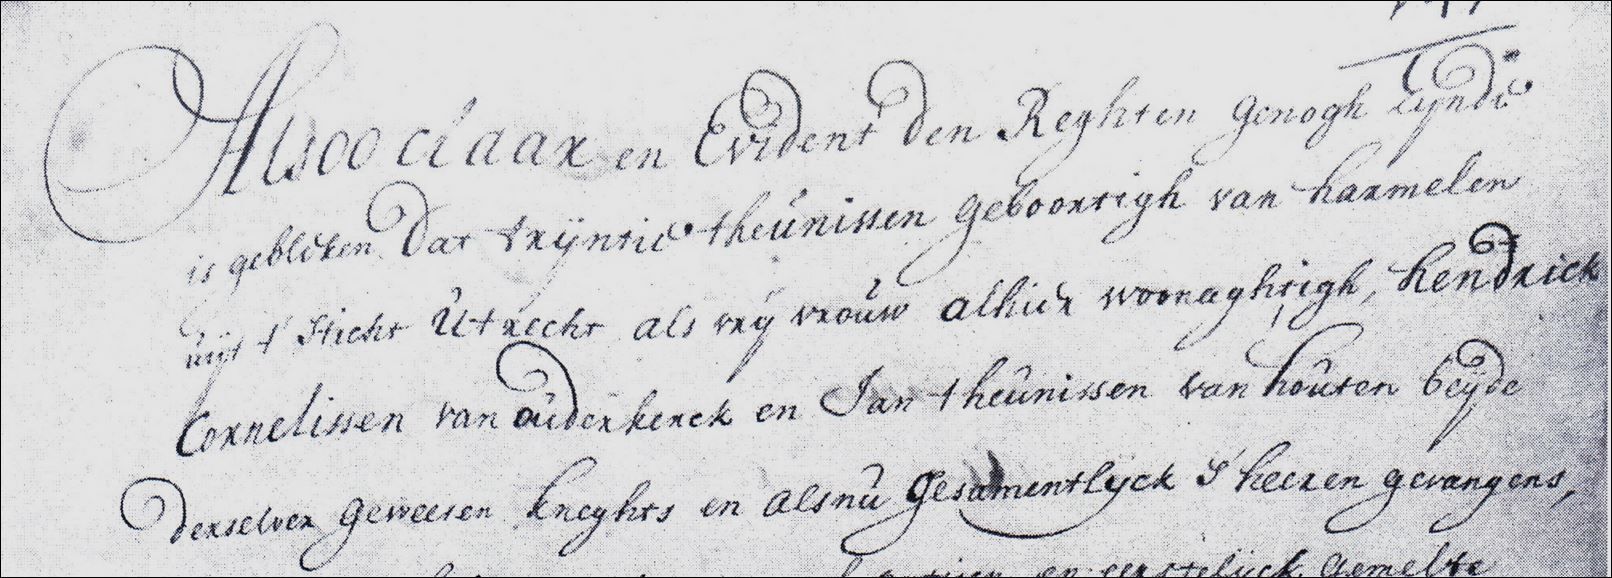 Alsoo claar en Evident den Reghten genogh
is gebleken Dat trijntie theunissen geboortigh van harmelen
uijt t' sticht Utrecht als vrij vrouw alhier woonaghtigh, hendrick
Cornelissen van ouderkerck en Jan theunissen van houten beijde
derselver geweesen kneghts en alsnu gesamentlijck s' heeren gevangens,
en eerstelijck gemelte